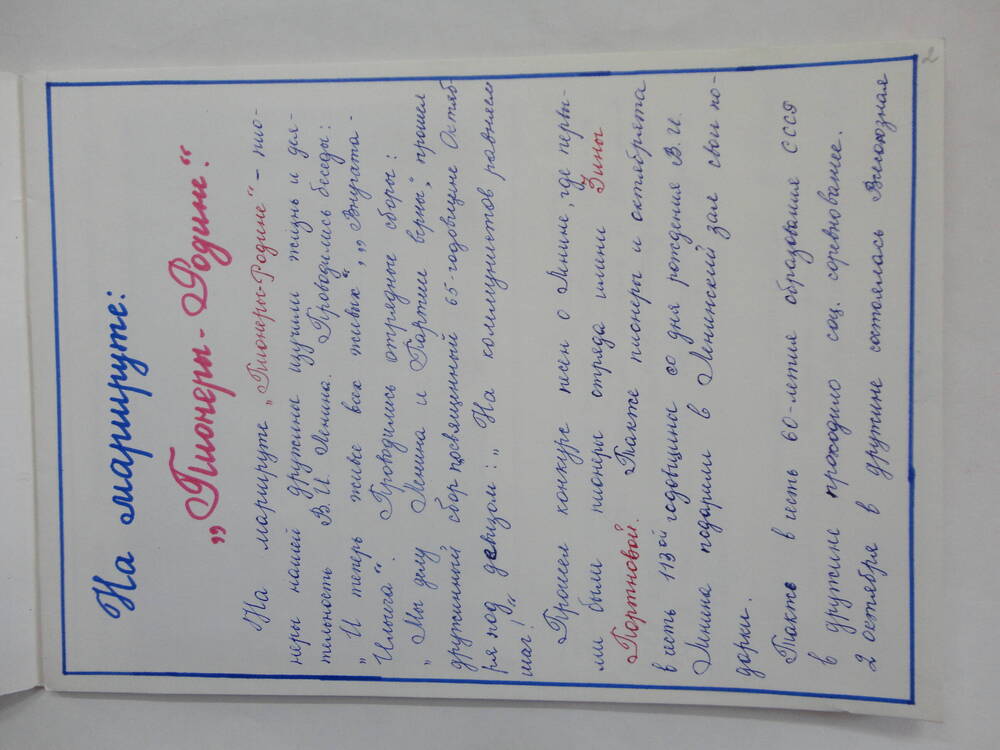 2
На маршруте:
„Пионеры - Родине".
На маршруте „Пионеры-Родине" - пио-
неры нашей дружины изучали жизнь и дея-
тельность В.И. Ленина. Проводились беседы:
„И теперь живее всех живых", „Внучата -
Ильича". Проводились отрядные сборы:
„Мы делу Ленина и Партии верны", прошел
дружинный сбор посвященный 65-годовщине Октяб-
ря под девизом: „На коммунистов равняем
шаг!"
Прошел конкурс песен о Ленине, где первы-
ми были пионеры отряда имени Зины
Портновой. Также пионеры и октябрята
в честь 113ой годовщины со дня рождения В.И.
Ленина подарили в Ленинский зал свои по-
дарки.
Также в честь 60-летия образования СССР
в дружине проходило соц. соревнование.
2 октября в дружине состоялась Всесоюзная